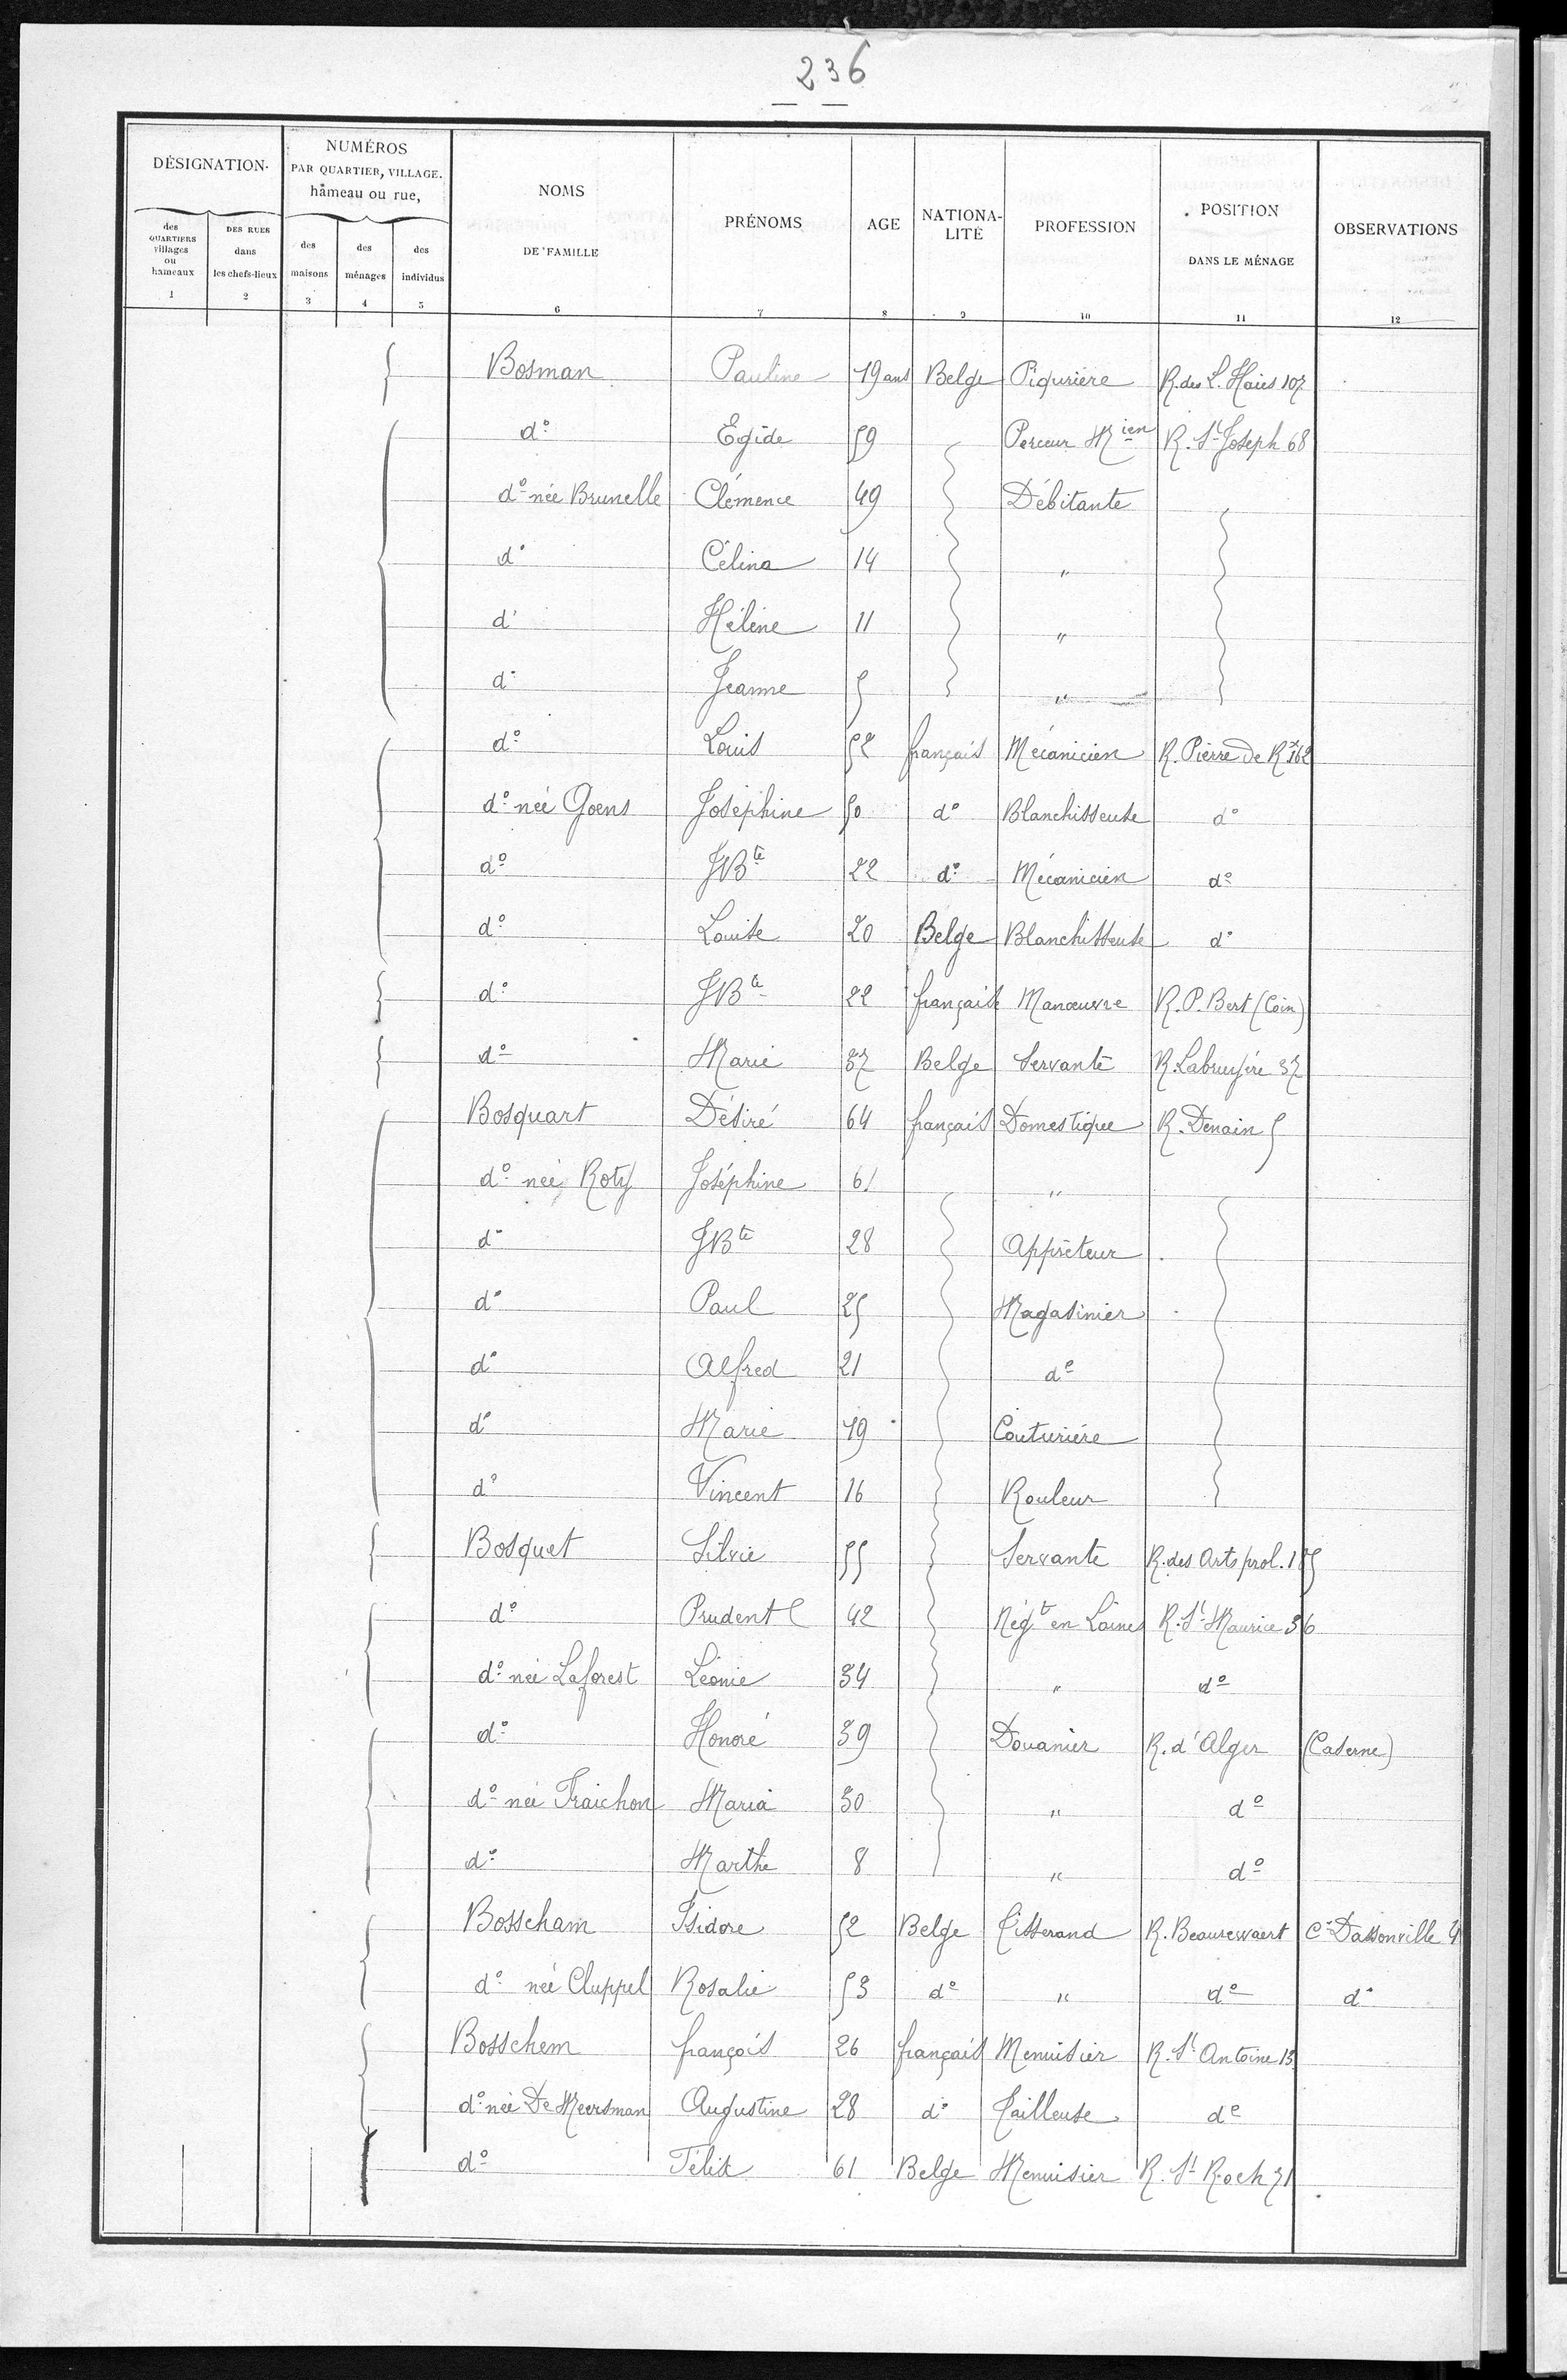 236
DÉSIGNATION
NUMÉROS PAR QUARTIER, VILLAGE. hameau ou rue,
des QUARTIERS villages ou hameaux
DES RUES dans les chefs-lieux
des maisons
des ménages
des individus
NOMS DE FAMILLE
PRÉNOMS
AGE
NATIONA-LITÉ
PROFESSION
POSITION DANS LE MÉNAGE
OBSERVATIONS
1 2 3 4 5 6 7 8 9 10 11 12
Bosman Pauline 19 ans Belge Piqurière R. des L. Haies 107
do Egide 59 Perceur Mien R. St Joseph 68
do née Brunelle Clémence 49 Débitante
do Célina 14 "
do Hélène 11 "
do Jeanne 5 "
do Louis 52 français Mécanicien R. Pierre de Rx 162
do née Goens Joséphine 50 do Blanchisseuse do
do JBte 22 do Mécanicien do
do Louise 20 Belge Blanchisseuse do
do JBte 22 française Manœuvre R. P. Bert (Coin)
do Marie 37 Belge Servante R. Labruyère 37
Bosquart Désiré 64 français Domestique R. Denain 5
do née Roty Joséphine 61 "
do JBte 28 Appréteur
do Paul 25 Magasinier
do Alfred 21 do
do Marie 19 Couturière
do Vincent 16 Rouleur
Bosquet Silvie 55 Servante R. des Arts prol. 185
do Prudent 42 Négt en Laines R. St Maurice 36
do née Laforest Léonie 34 " do
do Honoré 39 Douanier R. d'Alger (Caserne)
do née Fraichon Maria 30 " do
do Marthe 8 " do
Bosscham Isidore 52 Belge Tisserand R. Beaurewaert Cr Dassonville 4
do née Cluppel Rosalie 53 do " do do
Bosschem françois 26 français Menuisier R. St Antoine 13
do née De Meersman Augustine 28 do Tailleuse do
do Félix 61 Belge Menuisier R. St Roch 71